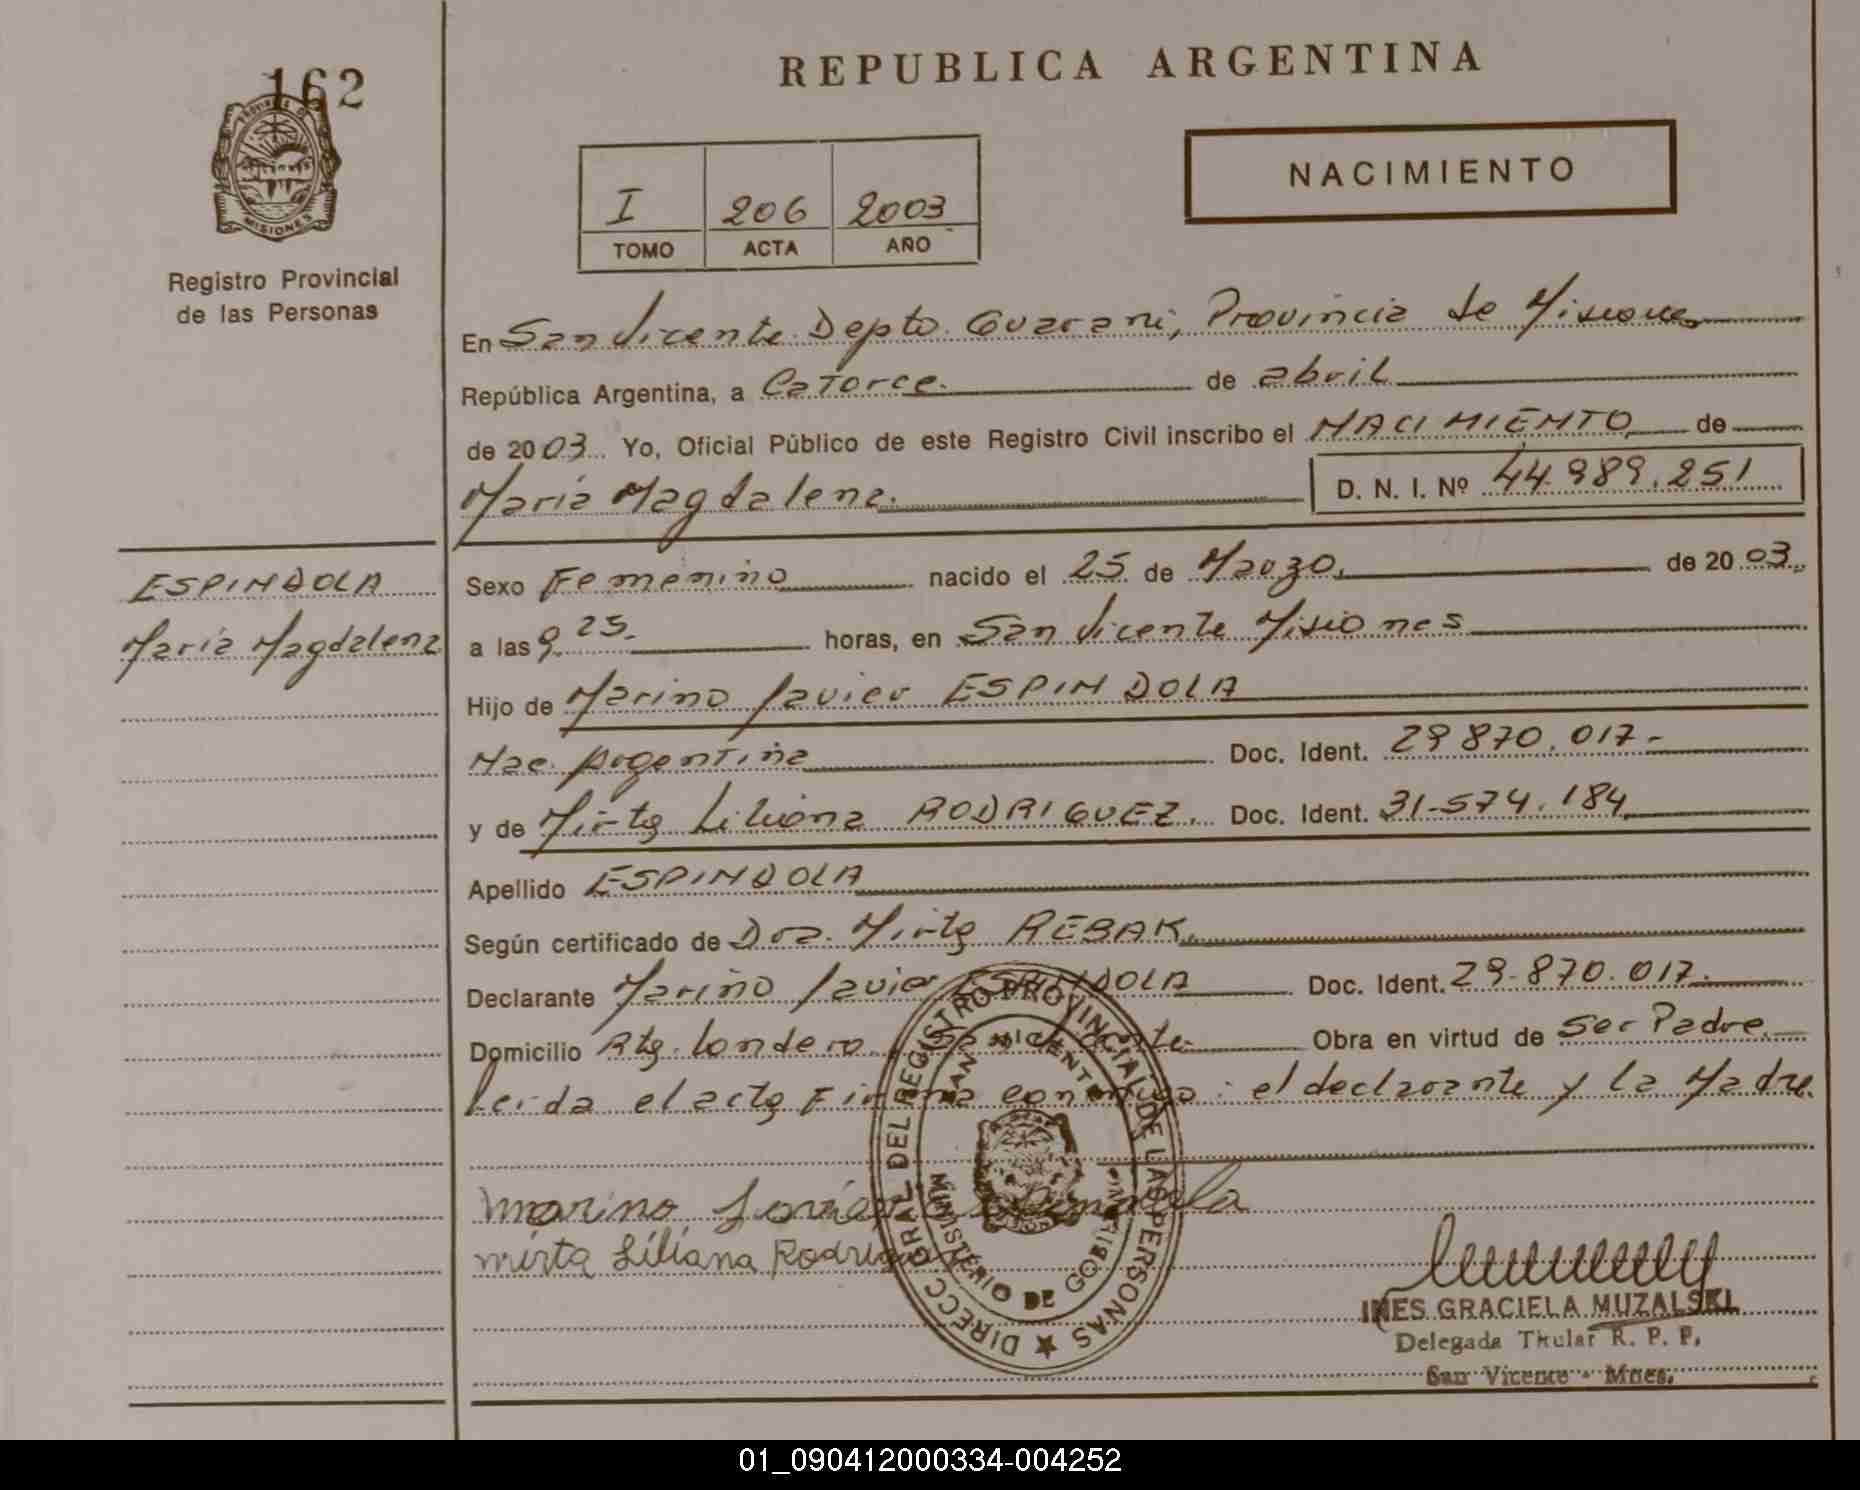 162
REPUBLICA ARGENTINA
PROVINCIA DE
MISIONES
Registro Provincial
de las Personas
NACIMIENTO
I 206 2003
TOMO ACTA AÑO
En San Vicente Depto. Guarani, Provincia de Misiones
República Argentina, a Catorce. de abril
de 2003. Yo, Oficial Público de este Registro Civil inscribo el NACIMIENTO de
Maria Magdalena. D. N. I. Nº 44.989.251
ESPINDOLA
Maria Magdalena
Sexo Femenino nacido el 25 de Marzo, de 2003.
a las 9 25. horas, en San Vicente Misiones
Hijo de Marino Javier ESPINDOLA
Nac. Argentina Doc. Ident. 29 870.017-
y de Mirta Liliana RODRIGUEZ. Doc. Ident. 31-574.184
Apellido ESPINDOLA
Según certificado de Dra. Mirta REBAK.
Declarante Marino Javier ESPINDOLA Doc. Ident. 29-870.017.
Domicilio Rta. Londero. San Vicente Obra en virtud de Ser Padre.
Leida el acta Firma conmigo: el declarante y la Madre.
marino Javier Espindola
mirta Liliana Rodriguez
DIRECC. GRAL. DEL REGISTRO PROVINCIAL DE LAS PERSONAS
SAN VICENTE
MINISTERIO DE GOBIERNO
INES GRACIELA MUZALSKI
Delegada Titular R. P. P.
San Vicente - Mnes.
01_090412000334-004252